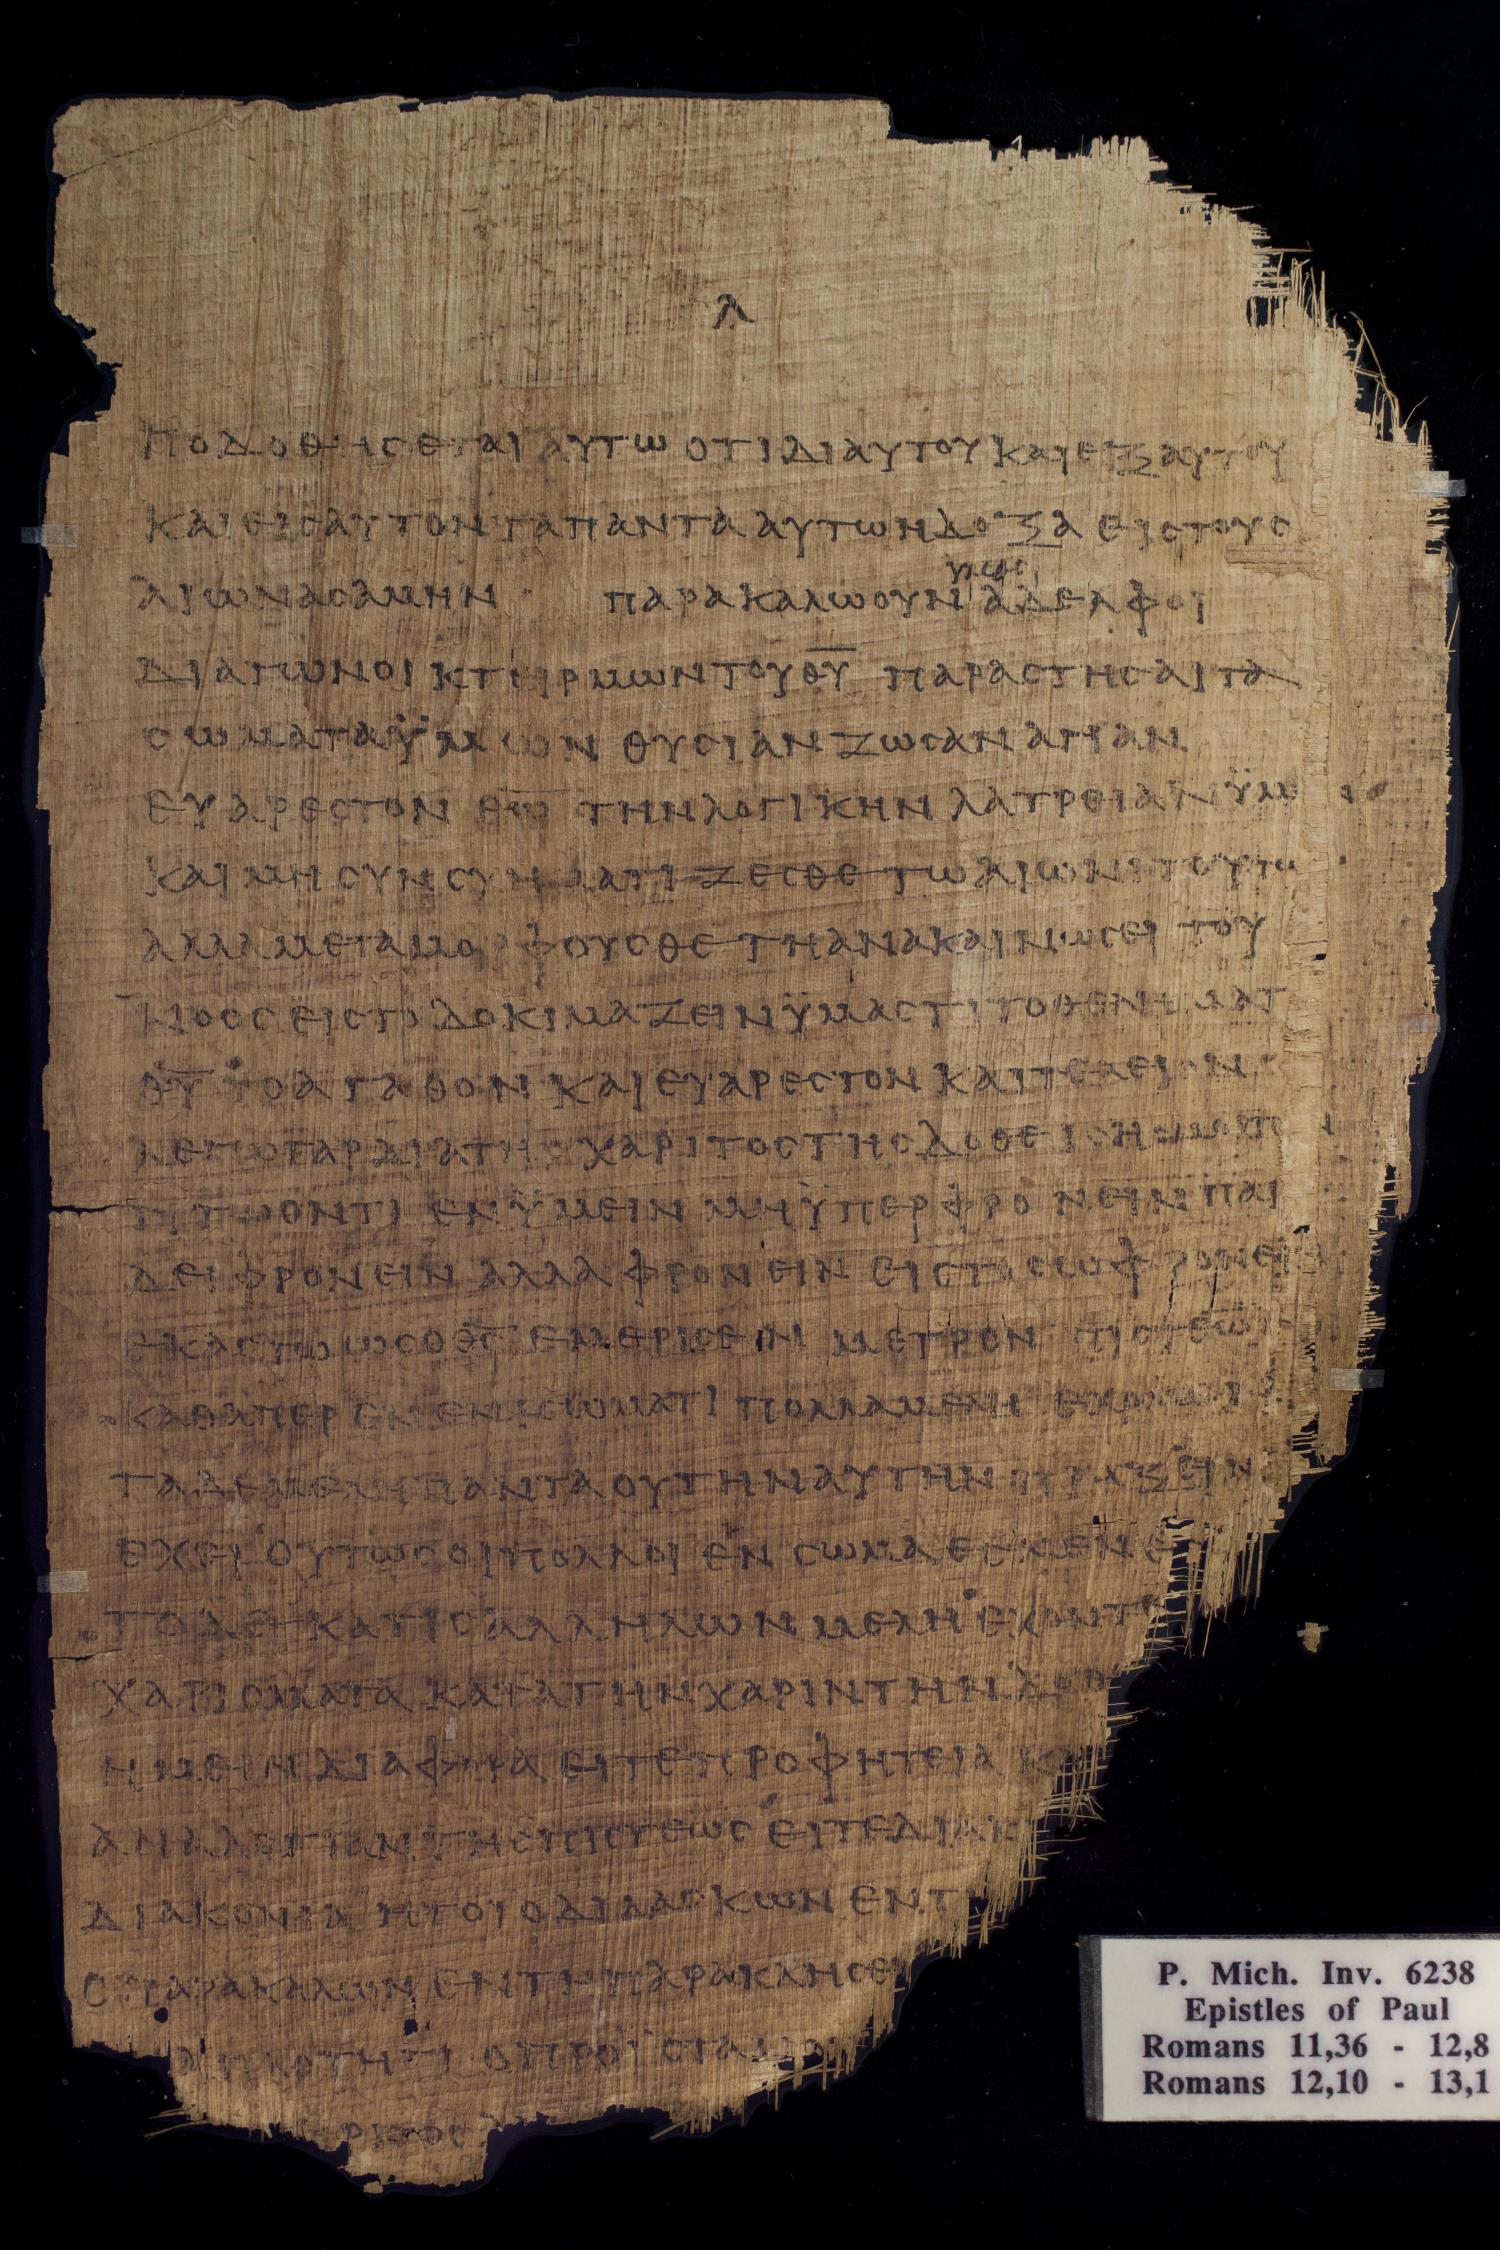 λ
ποδοθησεται αυτω οτι δι αυτου και εξ αυτου
και εις αυτον τα παντα αυτω η δοξα εις τους
αιωνας αμην παρακαλω ουν αδελφοι
δια των οικτειρμων του θ̅υ̅ παραστησαι τα
σωματα ϋμων θυσιαν ζωσαν αγιαν
ευαρεστον θ̅ω̅ την λογικην λατρειαν
και μη συνσχηματιζεσθε τω αιωνι τουτω
αλλα μεταμορφουσθε τη ανακαινωσει του
νοος εις το δοκιμαζειν ϋμας τι το
θ̅υ̅ το αγαθον και ευαρεστον και τελειον
λεγω γαρ δια της χαριτος της δοθεισης
οντι εν ϋμειν μη ϋπερφρονειν παρ
δει φρονειν αλλα φρονειν εις το σωφρονειν
εκαστω ως ο θ̅ς̅ εμερισεν μετρον πιστεως
καθαπερ εν ενι σωματι πολλα μελη εχομεν
τα δε μελη παντα ου την αυτην πραξιν
εχει ουτως οι πολλοι εν σωμα εσμεν εν
το δε κατ ις αλληλων μελη εχοντ
χαρισματα κατα την χαριν την δοθ
ημειν διαφορα ειτε προφητεια κα
αναλογιαν της πιστεως ειτε διακ
διακονια ητοι ο διδασκων εν τ
ο παρακαλων εν τη παρακλησει
απλοτητι ο προϊσταμ
P. Mich. Inv. 6238
Epistles of Paul
Romans 11,36 - 12,8
Romans 12,10 - 13,1